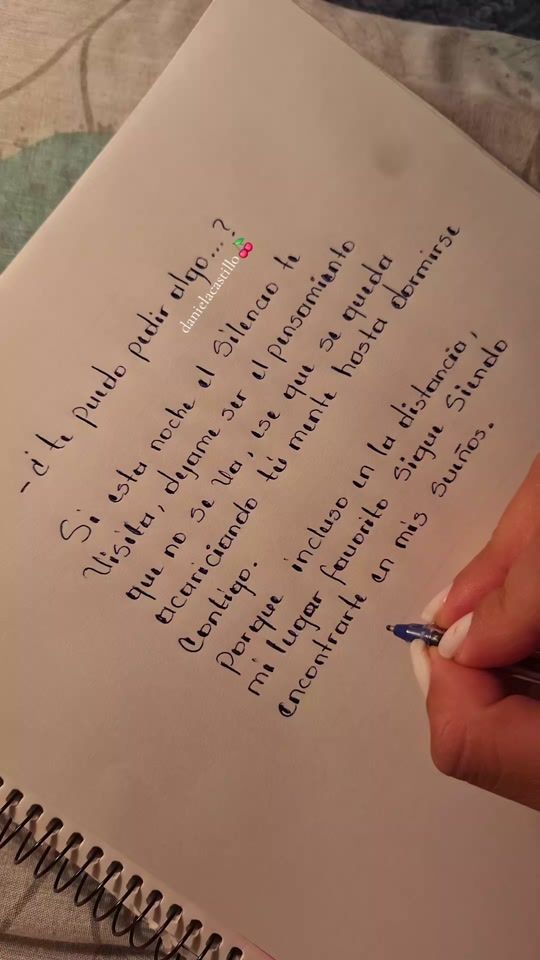 - ¿ te puedo pedir algo...?
danielacastillo🍒
Si esta noche el silencio te
visita, dejame ser el pensamiento
que no se va, ese que se queda
acariciando tú mente hasta dormirse
contigo.
Porque incluso en la distancia,
mi lugar favorito sigue siendo
encontrarte en mis sueños.